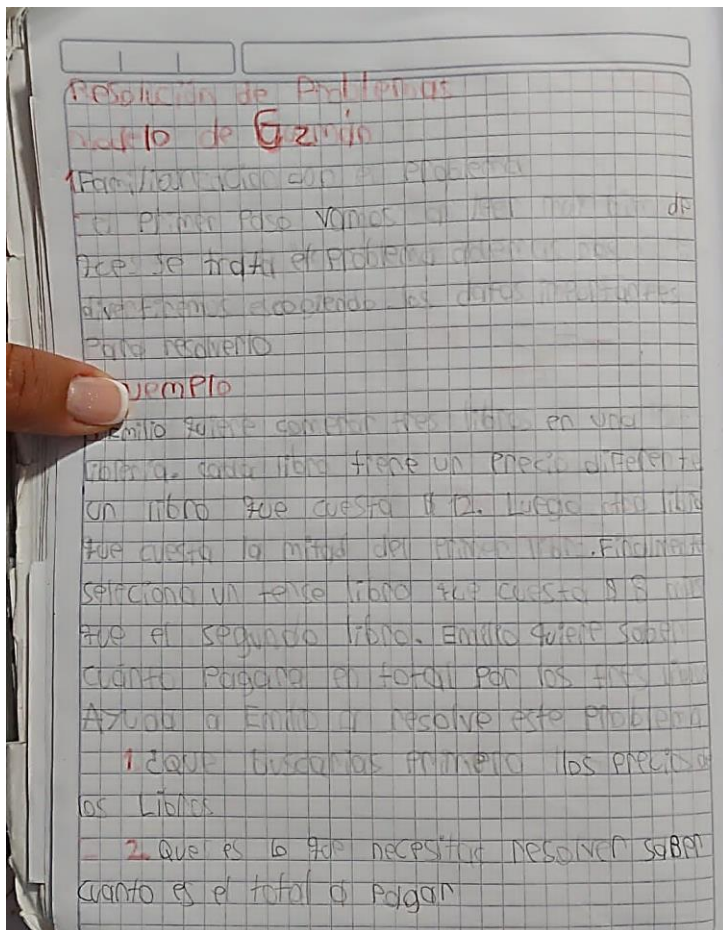 Resolución de Problemas
modelo de Guzmán
1 Familiarización con el problema
el primer Paso vamos a leer de
se trata el problema
escogiendo los datos importantes
Para resolverlo
Jemplo
Emilio quiere comprar tres libros en una
libreria. cada libro tiene un precio diferente
un libro que cuesta $ 12. Luego otro libro
que cuesta la mitad del primer libro. Finalment
selecciona un terce libro que cuesta $ 8 más
que el segundo libro. Emilio quiere saber
cuánto pagara en total por los tres
Ayuda a Emilio a resolve este problema
1 ¿que buscarias primero los precios
los Libros
2. Que es lo que necesitas resolver saber
cuanto es el total a pagar